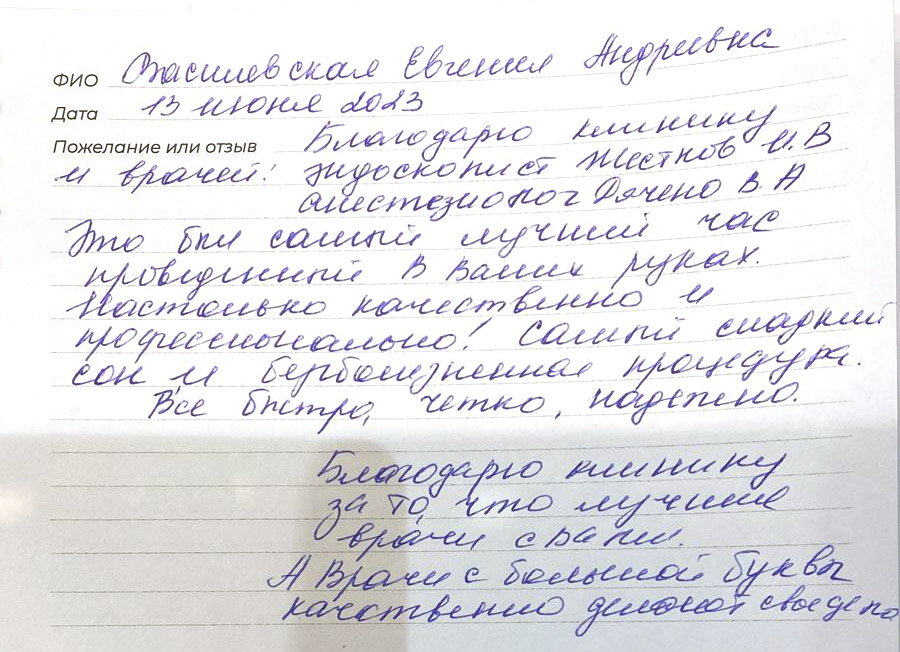 ФИО Василевская Евгения Андреевна
Дата 13 июня 2023
Пожелание или отзыв Благодарю клинику
и врачей: эндоскопист Жестков И.В
анестезиолог Дячено В.А
Это был самый лучший час
проведенный в Ваших руках.
Настолько качественно и
профессионально! Самый сладкий
сон и безболезненная процедура.
Все быстро, четко, надежно.
Благодарю клинику
за то, что лучшие
врачи с вами.
А Врачи с большой буквы
качественно делают свое дело